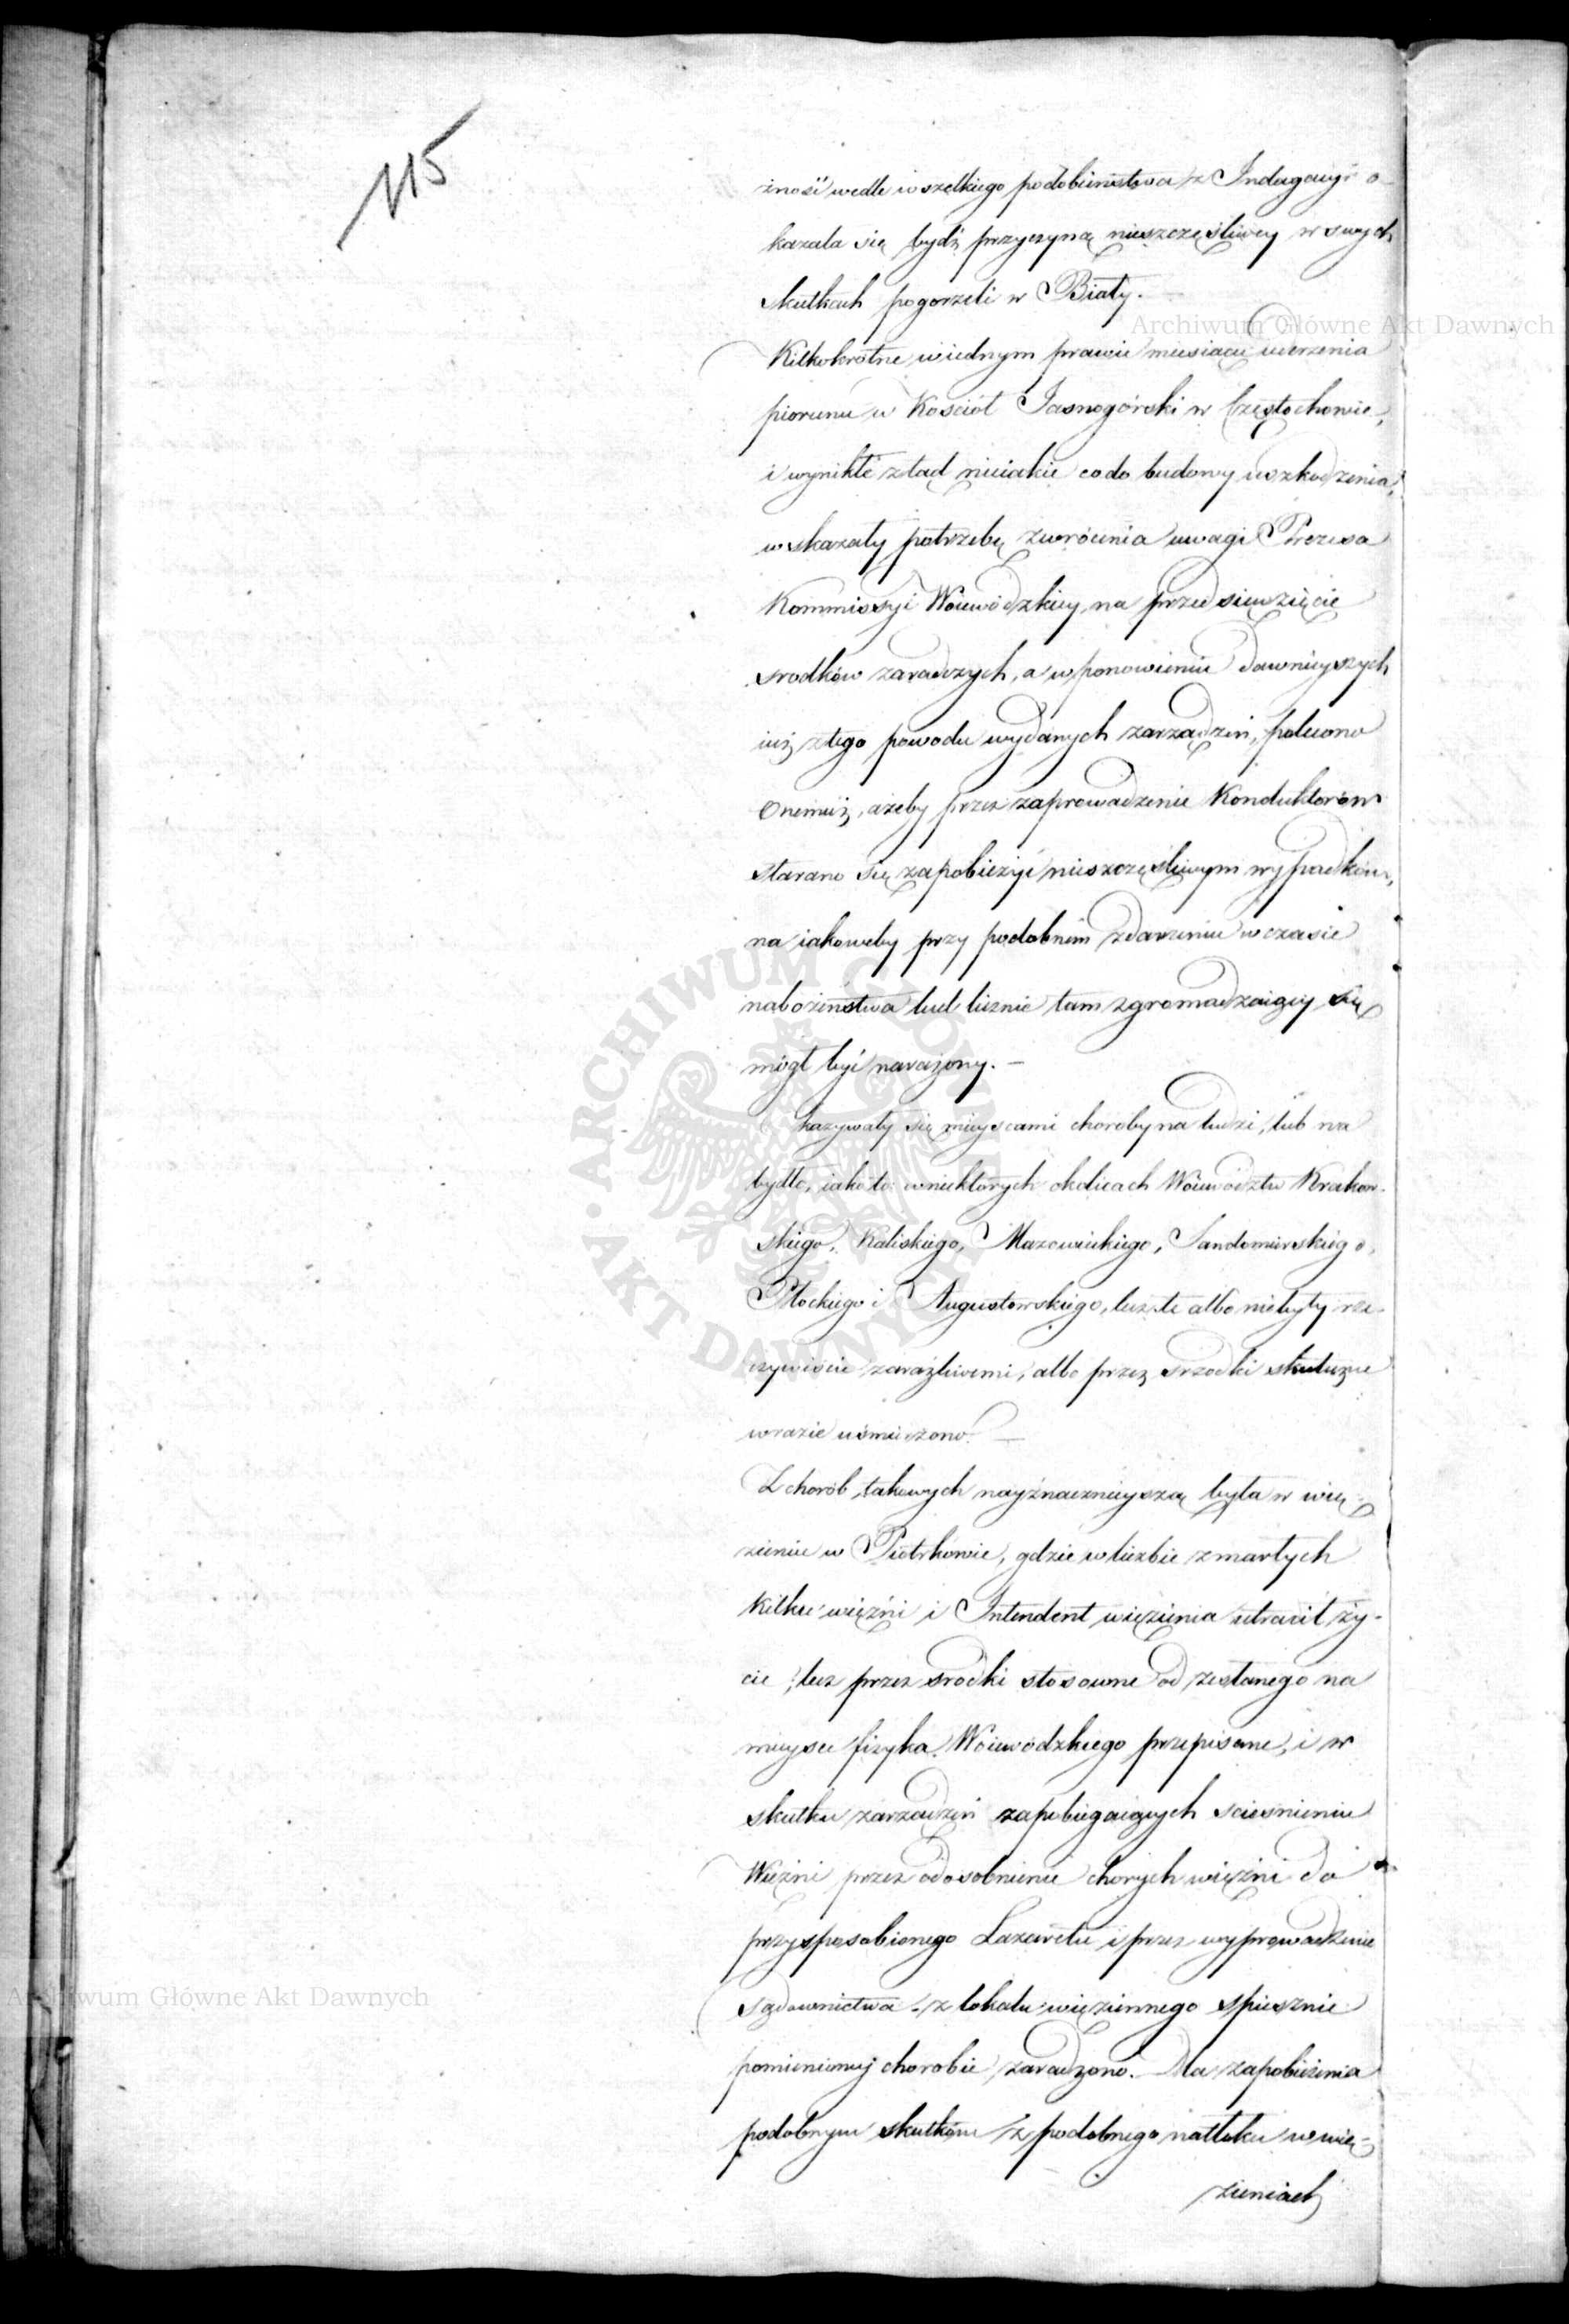 115
żność wedle wszelkiego podobieństwa z Indagacyi o-
kazała się bydź przyczyną nieszczęśliwey w swych
skutkach pogorzeli w Biały.
Archiwum Główne Akt Dawnych
Kilkokrotne w iednym prawie miesiącu uderzenia
piorunu w Kościół Jasnogórski w Częstochowie,
i wynikłe ztąd nieiakie co do budowy uszkodzenia,
wskazały potrzebę zwrócenia uwagi Prezesa
Kommissyi Woiewódzkiey, na przedsięwzięcie
srodków zaradczych, a w ponowieniu dawnieyszych
iuż z tego powodu wydanych zarządzeń, polecono
Onemuż, ażeby przez zaprowadzenie Konduktorów
starano się zapobieżyć nieszczęśliwym wypadkom,
na iakoweby przy podobnem zdarzeniu w czasie
nabożeństwa lud licznie tam zgromadzaiący się
mógł być narażony. —
kazywały się mieyscami choroby na ludzi, lub na
bydło, iako to w niektórych okolicach Woiewództw Krakow-
skiego, Kaliskiego, Mazowieckiego, Sandomirskiego,
Płockiego i Augustowskiego, lecz te albo nie były rze-
czywiście zaraźliwemi, albo przez srzodki skuteczne
w razie uśmierzono. —
Z chorób takowych nayznacznieyszą była w wię-
zieniu w Piotrkowie, gdzie w liczbie zmarłych
kilku więźni i Intendent więzienia utracił ży-
cie, lecz przez srodki stosowne od zesłanego na
mieysce fizyka Woiewódzkiego przepisane, i w
skutku zarządzeń zapobiegaiących scieśnieniu
Więźni przez odosobnienie chorych więźni do
przysposobionego Lazaretu i przez wyprowadzenie
Archiwum Główne Akt Dawnych
Sądownictwa z lokalu więziennego spiesznie
pomienioney chorobie zaradzono. Dla zapobieżenia
podobnym skutkom z podobnego natłoku w wię-
zieniach
ARCHIWUM GŁÓWNE AKT DAWNYCH